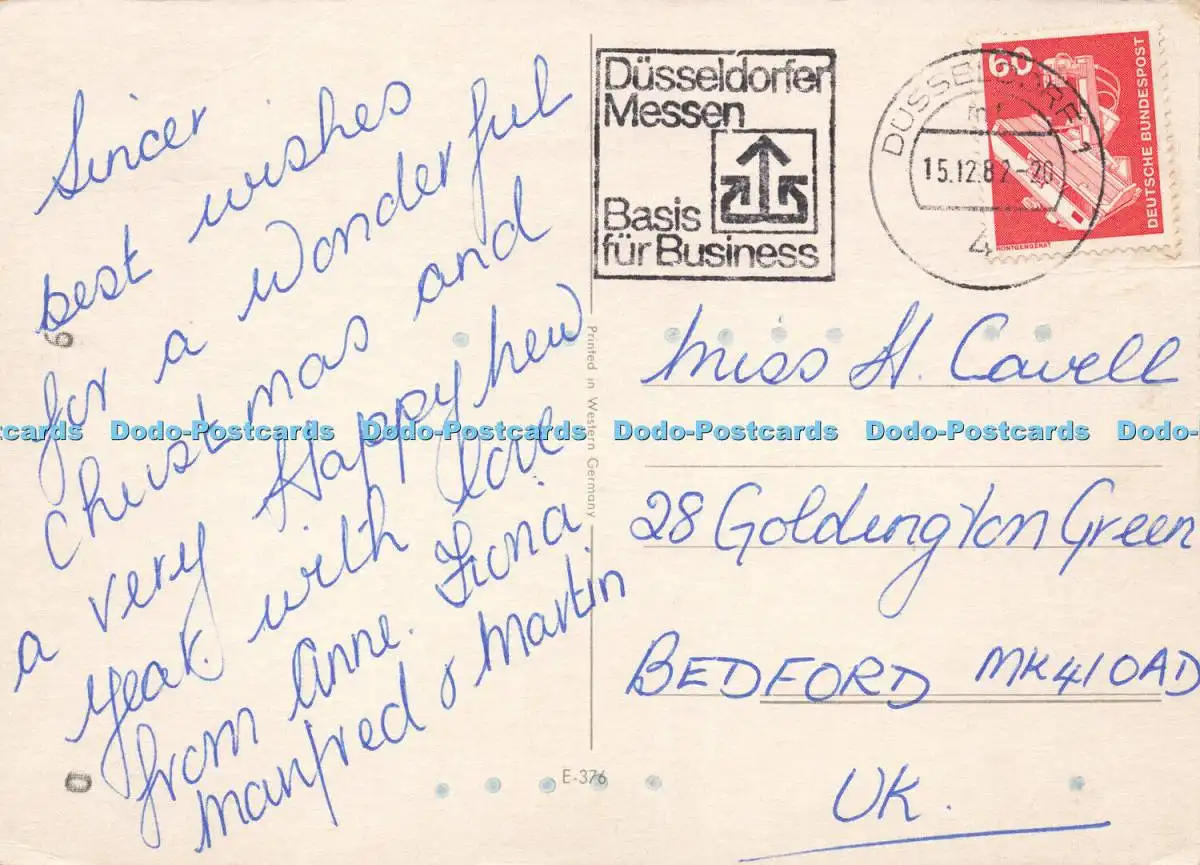 Sincer
best wishes
for a wonderful
Christmas and
a very Happy New
year. with love
from Anne. Fiona
Manfred & Martin
Düsseldorfer
Messen
Basis
für Business
DÜSSELDORF 1
15.12.82-20
4
60
DEUTSCHE BUNDESPOST
RÖNTGENGERÄT
Printed in Western Germany
Miss H. Cavell
Dodo-Postcards Dodo-Postcards Dodo-Postcards Dodo-Postcards
28 Goldington Green
BEDFORD MK41 0AD
UK.
E-376